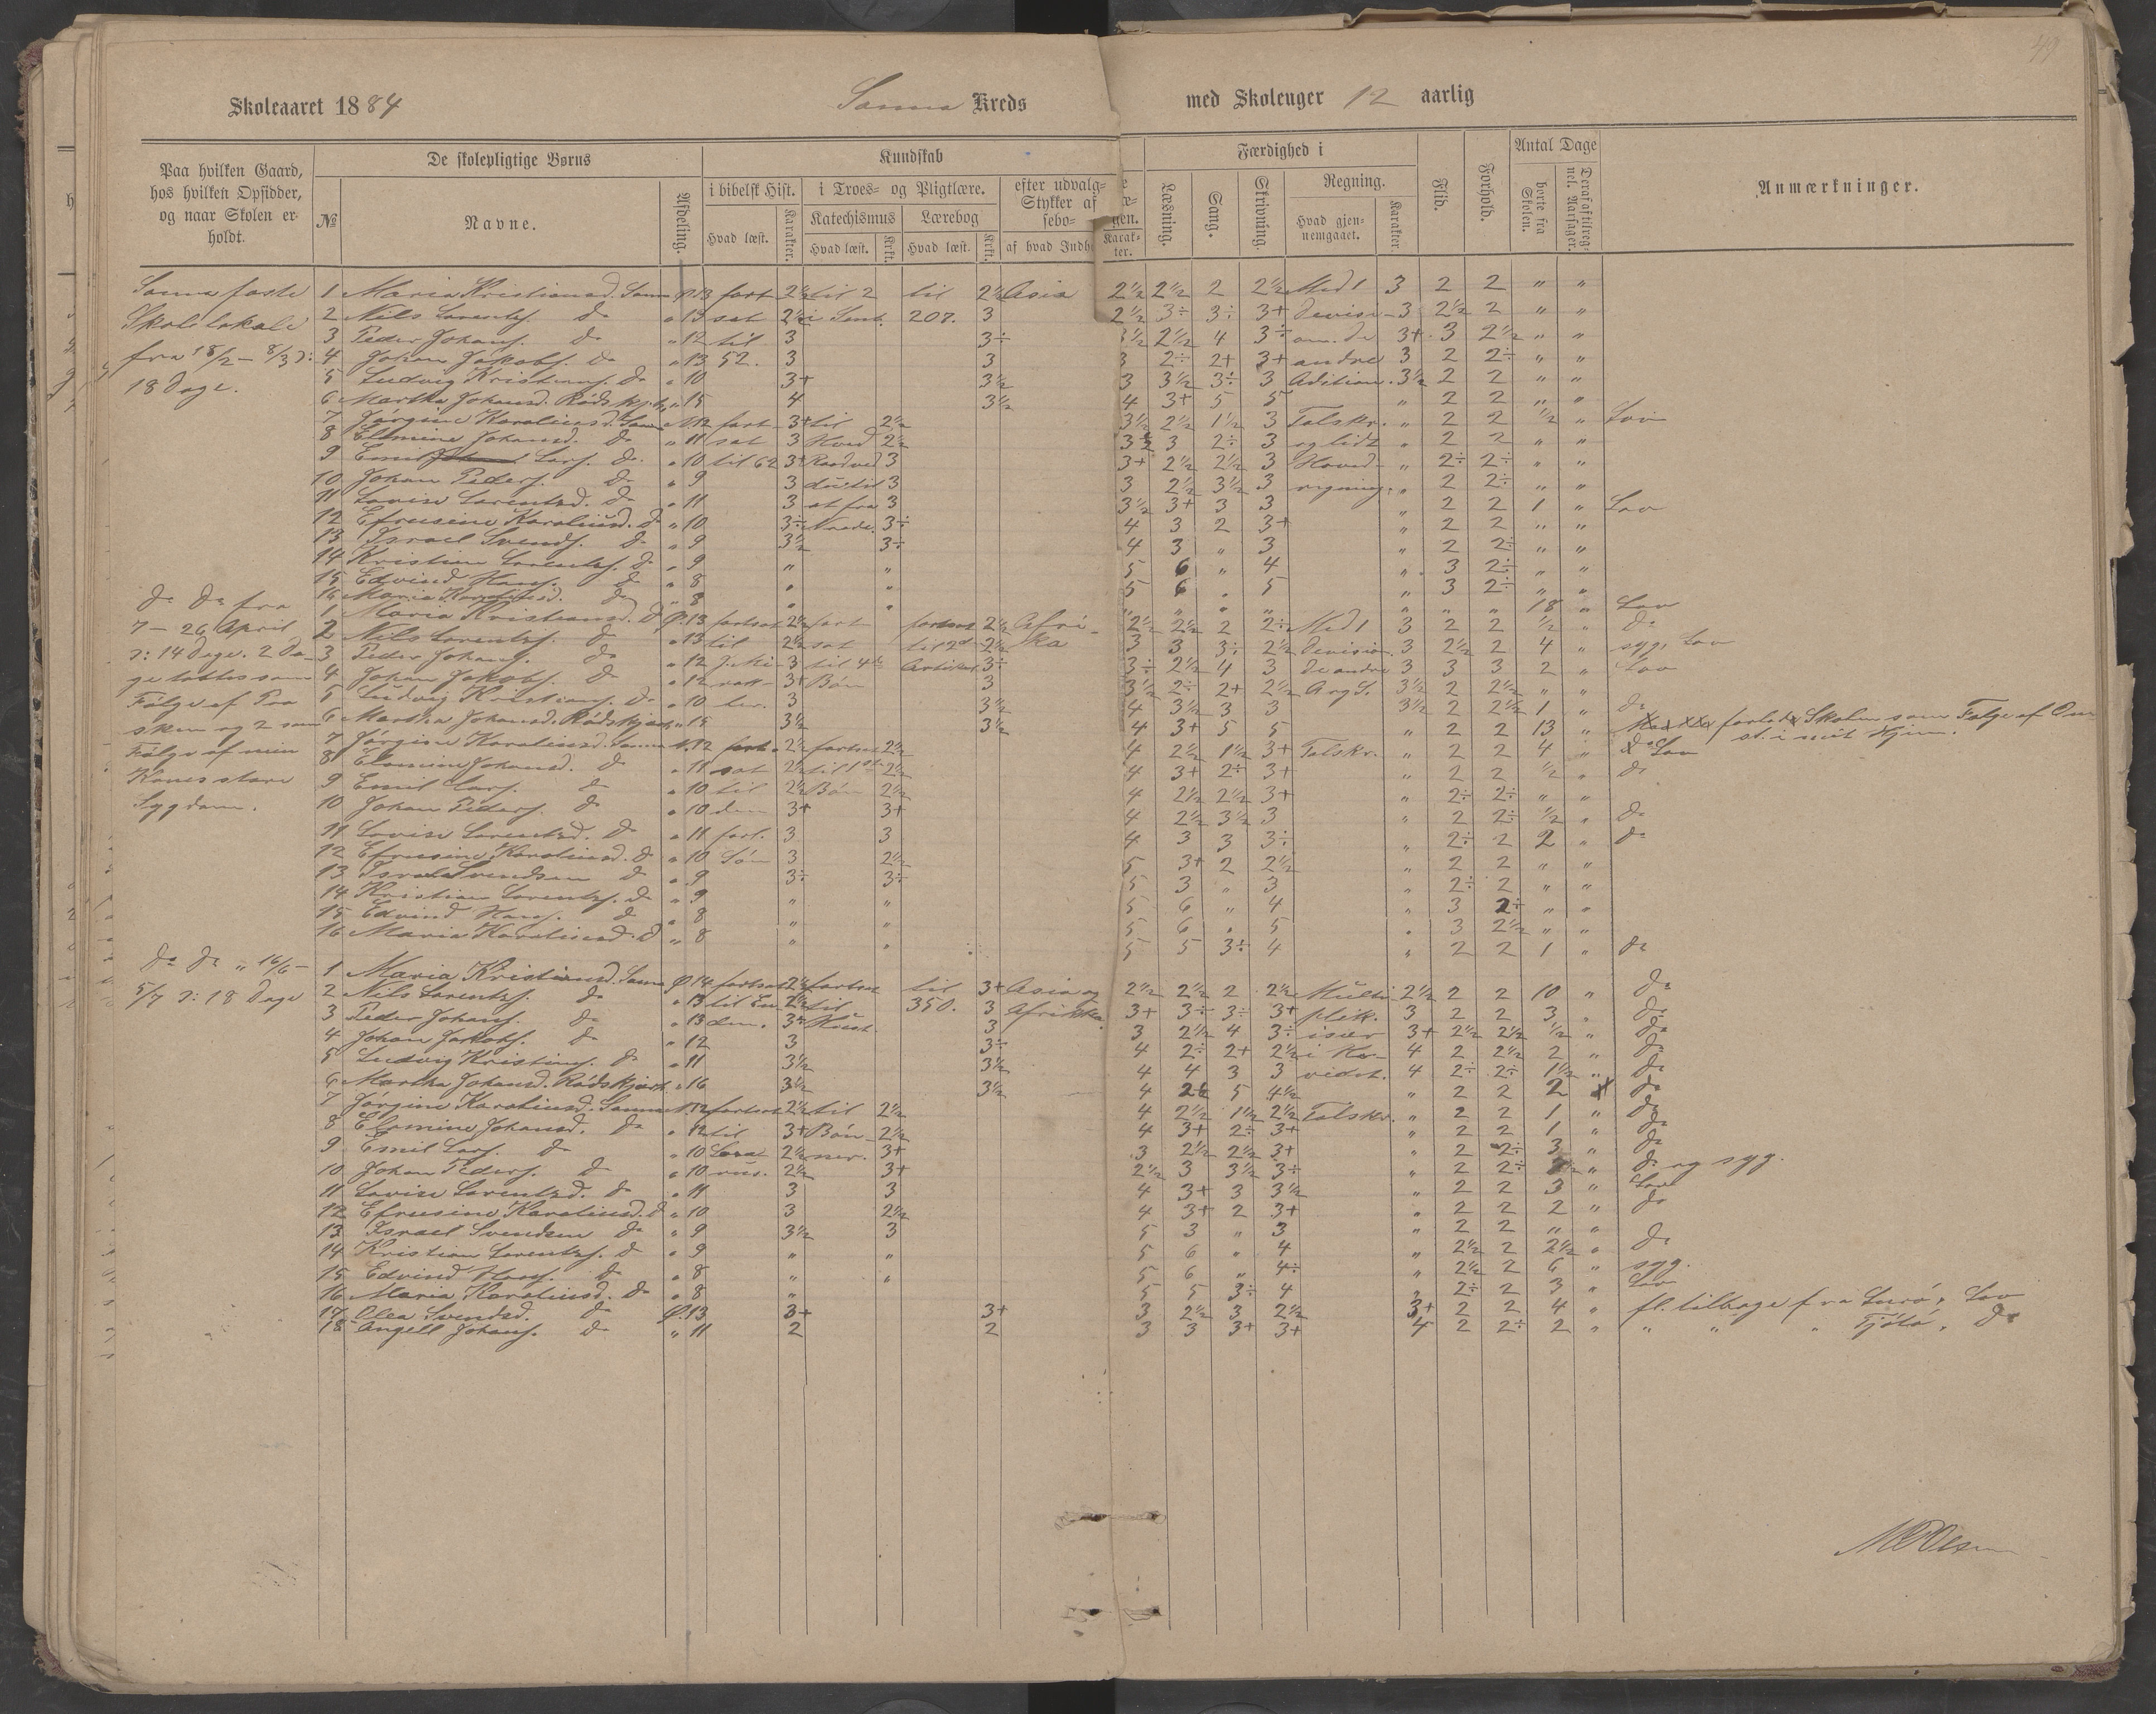 49
Skoleaaret 1884 Sanna Kreds med Skoleuger 12 aarlig
Paa hvilken Gaard, hos hvilken Opsidder, og naar Skolen er holdt.
De skolepligtige Børns
№ Navne. Afdeling.
Kundskab
i bibelsk Hist. i Troes- og Pligtlære. efter udvalg-
Stykker af
sebo-
Katechismus Lærebog
Hvad læst. Karakter. Hvad læst. Krkt. Hvad læst. Krkt. af hvad Indh
Karak-
ter.
Færdighed i
Læsning. Sang. Skrivning. Regning.
Hvad gjen-
nemgaaet. Karakter.
Flid. Forhold.
Antal Dage
borte fra Skolen. Deraf aftilreg-
nel. Aarsager.
Anmærkninger.
Sanna faste
Skolelokale
fra 18/2 - 8/3 ɔ:
18 Dage.
1 Maria Kristiansd. Sanna Ø. 13 fort 2½ til 2 til 2½ Asia 2½ 2½ 2 2½ Med 1 3 2 2 " "
2 Nils Lorentzs. do " 13 sat 2½ i Sent. 207. 3 2½ 3÷ 3÷ 3+ Devisi- 3 2½ 2 " "
3 Peder Johans. do " 12 til 3 3÷ 3½ 2½ 4 3÷ on. De 3+ 3 2½ " "
4 Johan Jakobs. do " 13 52. 3 3 3 2÷ 2+ 3+ andre 3 2 2÷ " "
5 Ludvig Kristians. do " 10 3+ 3½ 3 3½ 3÷ 3 Adition. 3½ 2 2 " "
6 Martha Johansd. Rødskj. " 15 4 3½ 4 3+ 5 5 " 2 2 " "
7 Jørgine Karoliusd. Sanna N. 12 fort 3+ til 2½ 3½ 2½ 1½ 3 Talskr. " 2 2 ½ " Lov
8 Elomine Johansd. do " 11 sat 3 Hvad 2½ 3½ 3 2÷ 3 og lidt " 2 2 " "
9 Emil Lars. do " 10 til 62 3+ Raadved 3 3+ 2½ 2½ 3 Hoved- " 2÷ 2÷ " "
10 Johan Peders. do " 9 3 du til 3 3 2½ 3½ 3 regning. " 2 2÷ " "
11 Lovise Lorentzd. do " 11 3 at fra 3 3½ 3+ 3 3 " 2 2 1 " Lov
12 Efrusine Karoliusd. do " 10 3÷ 3÷ 4 3 2 3+ " 2 2 " "
13 Israel Svends. do " 9 3½ 3÷ 4 3 " 3 " 2 2÷ " "
14 Kristian Lorentzs. do " 9 " " 5 6 " 4 " 3 2÷ " "
15 Edvind Hans. do " 8 " " 5 6 " 5 " 3 2÷ " "
16 Maria Karoliusd. do " 8 " " " " " " " " " 18 " Lov
do do fra
7 - 26 April
ɔ: 14 Dage. 2 Da-
ge tabtes som
Følge af Paa
sken og 2 som
Følge af min
Kones store
Sygdom.
1 Maria Kristiansd. do Ø. 13 fortsat 2½ fort fortsat 2½ Afri- 2½ 2½ 2 2÷ Med 1 3 2 2 ½ " do
2 Nils Lorentzs. do " 13 til 2½ sat til 2d 2½ ka 3 3 3÷ 2½ Devision. 3 2½ 2 4 " syg, Lov
3 Peder Johans. do " 12 3 til 4de Artikel 3÷ 3÷ 2½ 4 3 De andre 3 3 3 2 " Lov
4 Johan Jakobs. do " 12 3+ Bøn 3 3½ 2÷ 2+ 2½ Arg S. 3½ 2 2½ " "
5 Ludvig Kristians. do " 10 ter. 3 3½ 4 3½ 3 3 3½ 2 2½ 1 " do
6 Martha Johansd. Rødskjær " 15 3½ 3½ 4 3+ 5 5 " 2 2 13 " forlod Skolen som Følge af Om-
st. i mit Hjem.
7 Jørgine Karoliusd. Sanna N. 12 fort- 2½ fortsat 2½ 4 2½ 1½ 3+ Talskr. " 2 2 4 " Lov
8 Elomine Johansd. do " 11 sat 2½ til 1ste 2½ 4 3+ 2÷ 3+ " 2 2 ½ " do
9 Emil Lars. do " 10 til 2½ Bøn 2½ 4 2½ 2½ 3+ " 2÷ 2÷ " "
10 Johan Peders. do " 10 den 3+ 3+ 4 2½ 3½ 3 " 2 2÷ ½ " do
11 Lovise Lorentzd. do " 11 forl. 3 3 4 3 3 3÷ " 2÷ 2 2 " do
12 Efrusine Karoliusd. do " 10 Søn 3 2½ 5 3+ 2 2½ " 2 2 " "
13 Israel Svendsen do " 9 3÷ 3÷ 5 3 " 3 " 2÷ 2 " "
14 Kristian Lorentzs. do " 9 " " 5 6 " 4 " 3 2÷ " "
15 Edvind Hans. do " 8 " " 5 6 " 5 " 3 2½ " "
16 Maria Karoliusd. do " 8 " " 5 5 3÷ 4 " 2 2 1 " do
do do " 16/6 -
5/7 ɔ: 18 Dage
1 Maria Kristiansd. Sanna Ø. 14 fortsat 2½ fortsat til 3+ Asia og 2½ 2½ 2 2½ Multi- 2½ 2 2 10 " do
2 Nils Lorentzs. do " 13 til En- 2½ til 350. 3 Afrikka. 3+ 3÷ 3÷ 3+ plik. 3 2 2 3 " do
3 Peder Johans. do " 13 den. 3÷ 3 3 2½ 4 3÷ især 3+ 2½ 2½ ½ " do
4 Johan Jakobs. do " 12 3 3÷ 4 2÷ 2+ 2½ i Ho- 4 2 2½ 2 " do
5 Ludvig Kristians. do " 11 3½ 3½ 4 4 3 3 vedet. 4 2÷ 2÷ 1½ " do
6 Martha Johansd. Rødskjær. " 16 3½ 3½ 4 5 4½ " 2 2 2 do
7 Jørgine Karoliusd. Sanna N. 12 fortsat 2½ til 2½ 4 2½ 1½ 2½ Talskr. " 2 2 1 " do
8 Elomine Johansd. do " 12 til 3+ Bøn- 2½ 4 3+ 2÷ 3+ " 2 2 1 " do
9 Emil Lars. do " 10 Laza 2½ ner. 3+ 3 2½ 2½ 3+ " 2 2÷ 3 " do
10 Johan Peders. do " 10 rus. 2½ 3+ 2½ 3 3½ 3÷ " 2 2÷ " do og syg.
11 Lovise Lorentzd. do " 11 3 3 4 3+ 3 3½ " 2 2 3 " Lov
12 Efrusine Karoliusd. do " 10 3 2½ 4 3+ 2 3+ " 2 2 2 " do
13 Israel Svendsen do " 9 3½ 3 5 3 " 3 " 2 2 " "
14 Kristian Lorentzs. do " 9 " " 5 6 " 4 " 2½ 2 2½ " do
15 Edvind Hans. do " 8 " " 5 6 " 4÷ " 2½ 2 6 " syg.
16 Maria Karoliusd. do " 8 " 5 5 3÷ 4 " 2÷ 2 3 " Lov
17 Olea Svendsd. do Ø. 13 3+ 3+ 3 2½ 3 2½ 3+ 2 2 4 " fl. tilbage fra Lurø, Lov
18 Angell Johans. do " 11 2 2 3 3 3+ 3+ 4 2 2÷ 2 " " " " Tjøtø, do